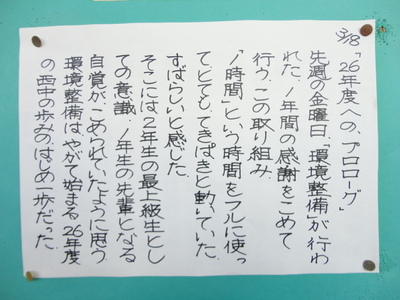 3/18「26年度への、プロローグ」
先週の金曜日、「環境整備」が行わ
れた。1年間の感謝をこめて
行う、この取り組み。
「1時間」という時間をフルに使っ
て、とても、てきぱきと動いていた。
すばらしいと感じた。
そこには2年生の最上級生とし
ての意識、1年生の先輩となる
自覚がこめられていたように思う
環境整備はやがて始まる26年度
の西中の歩みのはじめ一歩だった。